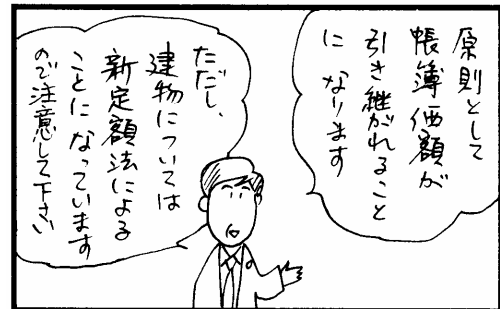 原則として
帳簿価額が
引き継がれること
に なります
ただし、
建物については
新定額法による
ことになっています
ので注意して下さい